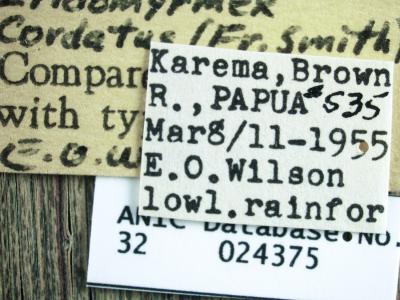 Iridomyrmex
Cordatus (Fr. Smith)
Compare
with ty
E.O.W
Karema, Brown
R., PAPUA #535
Mar8/11-1955
E.O.Wilson
lowl.rainfor
ANIC Database.No.
32 024375